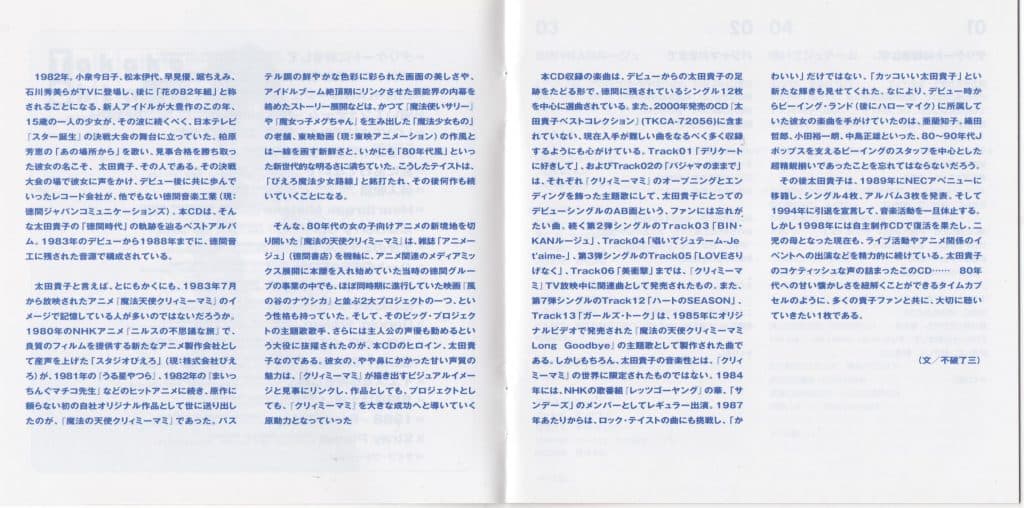 1982年。小泉今日子、松本伊代、早見優、堀ちえみ、
石川秀美らがTVに登場し、後に「花の82年組」と称
されることになる、新人アイドルが大豊作のこの年、
15歳の一人の少女が、その波に続くべく、日本テレビ
『スター誕生』の決戦大会の舞台に立っていた。柏原
芳恵の「あの場所から」を歌い、見事合格を勝ち取っ
た彼女の名こそ、太田貴子、その人である。その決戦
大会の場で彼女に声をかけ、デビュー後に共に歩んで
いったレコード会社が、他でもない徳間音楽工業（現：
徳間ジャパンコミュニケーションズ）。本CDは、そん
な太田貴子の「徳間時代」の軌跡を辿るベストアルバ
ム。1983年のデビューから1988年までに、徳間音
工に残された音源で構成されている。
太田貴子と言えば、とにもかくにも、1983年7月
から放映されたアニメ『魔法天使クリィミーマミ』のイ
メージで記憶している人が多いのではないだろうか。
1980年のNHKアニメ『ニルスの不思議な旅』で、
良質のフィルムを提供する新たなアニメ製作会社とし
て産声を上げた「スタジオぴえろ」（現：株式会社ぴえ
ろ）が、1981年の『うる星やつら』、1982年の『まいっ
ちんぐマチコ先生』などのヒットアニメに続き、原作に
頼らない初の自社オリジナル作品として世に送り出し
たのが、『魔法の天使クリィミーマミ』であった。パス
テル調の鮮やかな色彩に彩られた画面の美しさや、
アイドルブーム絶頂期にリンクさせた芸能界の内幕を
絡めたストーリー展開などは、かつて『魔法使いサリー』
や『魔女っ子メグちゃん』を生み出した「魔法少女もの」
の老舗、東映動画（現：東映アニメーション）の作風と
は一線を画す新鮮さと、いかにも「80年代風」といっ
た新世代的な明るさに満ちていた。こうしたテイストは、
「ぴえろ魔法少女路線」と銘打たれ、その後何作も続
いていくことになる。
そんな、80年代の女の子向けアニメの新境地を切
り開いた『魔法の天使クリィミーマミ』は、雑誌「アニメー
ジュ」（徳間書店）を機軸に、アニメ関連のメディアミッ
クス展開に本腰を入れ始めていた当時の徳間グルー
プの事業の中でも、ほぼ同時期に進行していた映画『風
の谷のナウシカ』と並ぶ2大プロジェクトの一つ、とい
う性格も持っていた。そして、そのビッグ・プロジェク
トの主題歌歌手、さらには主人公の声優も勤めるとい
う大役に抜擢されたのが、本CDのヒロイン、太田貴
子なのである。彼女の、やや鼻にかかった甘い声質の
魅力は、『クリィミーマミ』が描き出すビジュアルイメー
ジと見事にリンクし、作品としても、プロジェクトとし
ても、『クリィミーマミ』を大きな成功へと導いていく
原動力となっていった
本CD収録の楽曲は、デビューからの太田貴子の足
跡をたどる形で、徳間に残されているシングル12枚
を中心に選曲されている。また、2000年発売のCD『太
田貴子ベストコレクション』（TKCA-72056）に含
まれていない、現在入手が難しい曲をなるべく多く収録
するようにも心がけている。Track01「デリケート
に好きして」、およびTrack02の「パジャマのままで」
は、それぞれ『クリィミーマミ』のオープニングとエン
ディングを飾った主題歌にして、太田貴子にとっての
デビューシングルのAB面という、ファンには忘れが
たい曲。続く第2弾シングルのTrack03「BIN・
KANルージュ」、Track04「唱いてジュテーム-Je
t'aime-」、第3弾シングルのTrack05「LOVEさり
げなく」、Track06「美衝撃」までは、『クリィミーマ
ミ』TV放映中に関連曲として発売されたもの。また、
第7弾シングルのTrack12「ハートのSEASON」、
Track13「ガールズ・トーク」は、1985年にオリジ
ナルビデオで発売された『魔法の天使クリィミーマミ
Long Goodbye』の主題歌として製作された曲で
ある。しかしもちろん、太田貴子の音楽性とは、『クリィ
ミーマミ』の世界に限定されたものではない。1984
年には、NHKの歌番組『レッツゴーヤング』の華、「サ
ンデーズ」のメンバーとしてレギュラー出演。1987
年あたりからは、ロック・テイストの曲にも挑戦し、「か
わいい」だけではない、「カッコいい太田貴子」とい
った新たな輝きも見せてくれた。なにより、デビュー時
からビーイング・ランド（後にハローマイク）に所属してい
た彼女の楽曲を手がけていたのは、亜蘭知子、織田
哲郎、小田裕一朗、中島正雄といった、80～90年代J
ポップスを支えるビーイングのスタッフを中心とした
超精鋭揃いであったことを忘れてはならないだろう。
その後太田貴子は、1989年にNECアベニューに
移籍し、シングル4枚、アルバム3枚を発表。そして
1994年に引退を宣言して、音楽活動を一旦休止する。
しかし1998年には自主制作CDで復活を果たし、二
児の母となった現在も、ライブ活動やアニメ関係のイ
ベントへの出演などを精力的に続けている。太田貴子
のコケティッシュな声の詰まったこのCD…… 80年
代への甘い懐かしさを紐解くことができるタイムカプ
セルのように、多くの貴子ファンと共に、大切に聴い
ていきたい1枚である。
（文／不破了三）